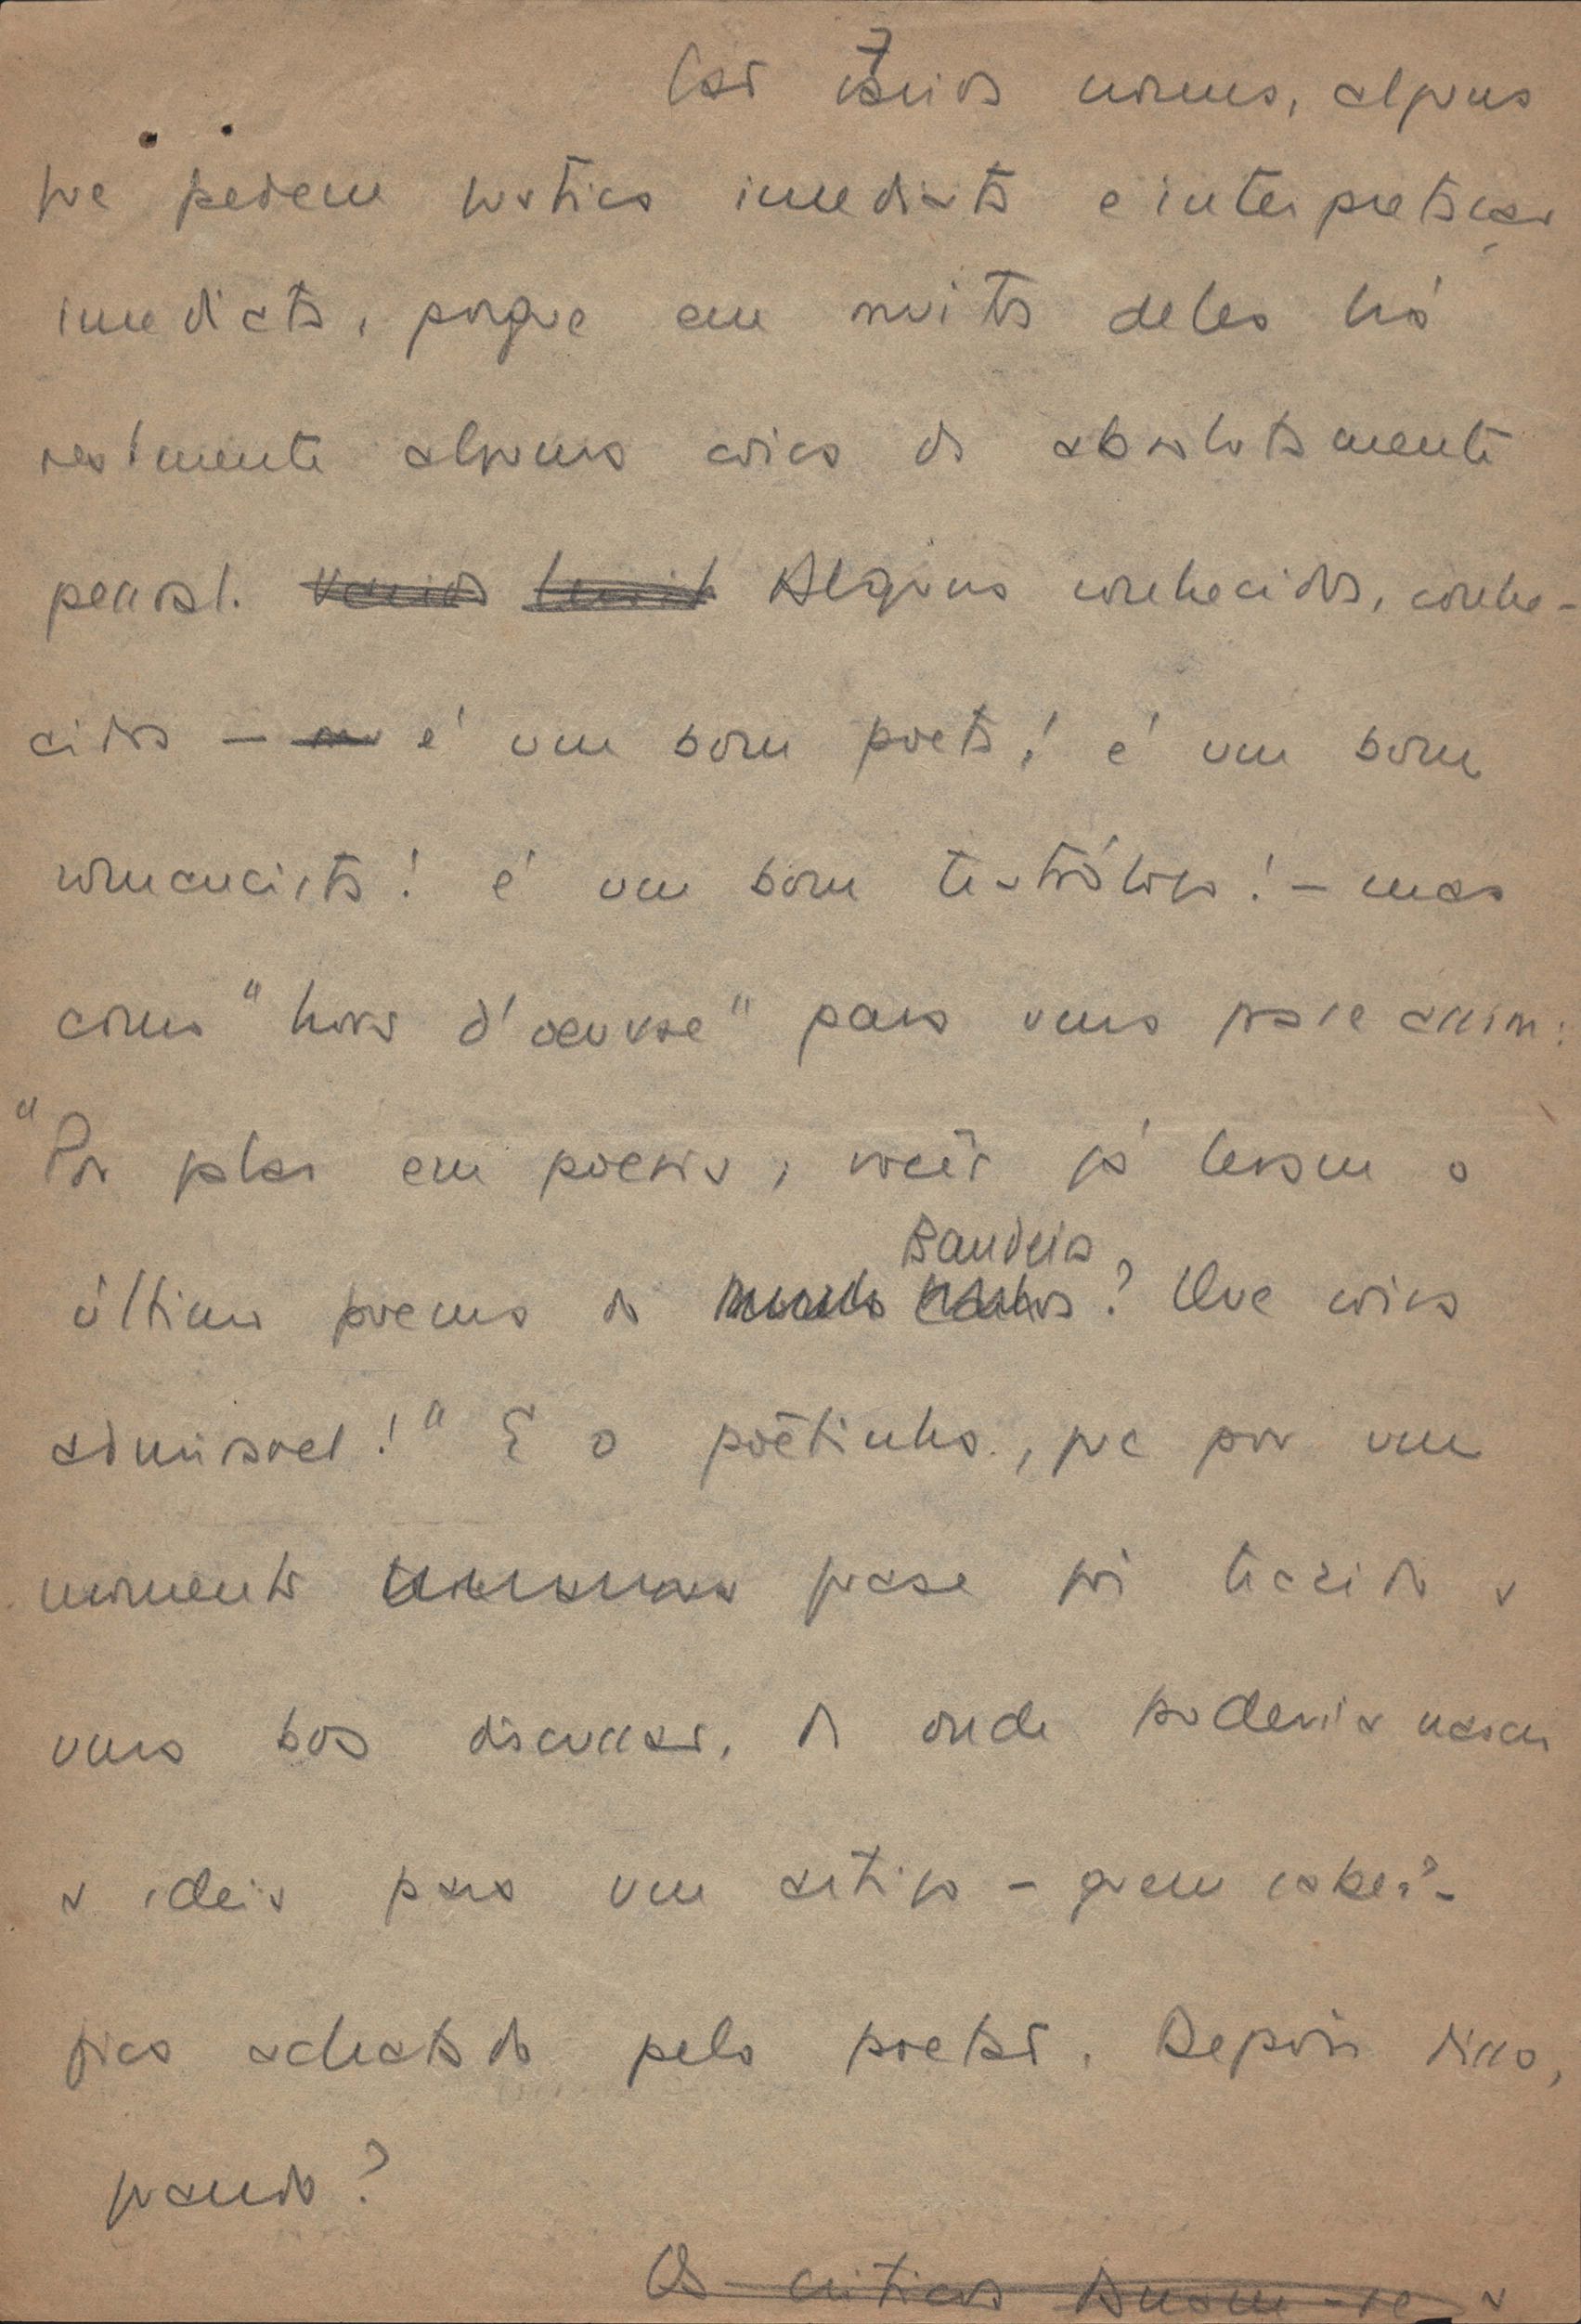 7
São vários nomes, alguns
que pedem justiça imediata e interpretação
imediata, porque em muitos deles há
realmente alguma coisa de absolutamente
pessoal. Vários Alguns conhecidos, conhe-
cidos — é um bom poeta! é um bom
romancista! é um bom teatrólogo! — mas
como "hors d'oeuvre" para uma frase assim:
"Por falar em poesia, vocês já leram o
Bandeira
último poema do Murilo Mendes? Que coisa
admirável!" E o poetinha, que por um
momento quase foi trazido a
uma boa discussão, de onde poderia nascer
a ideia para um artigo — quem sabe? —
fica achatado pelo poetão. Depois disso,
quando?
Os críticos